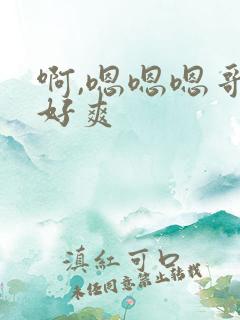 啊,嗯嗯嗯哥
好爽
滇红可口
未经同意禁止转载